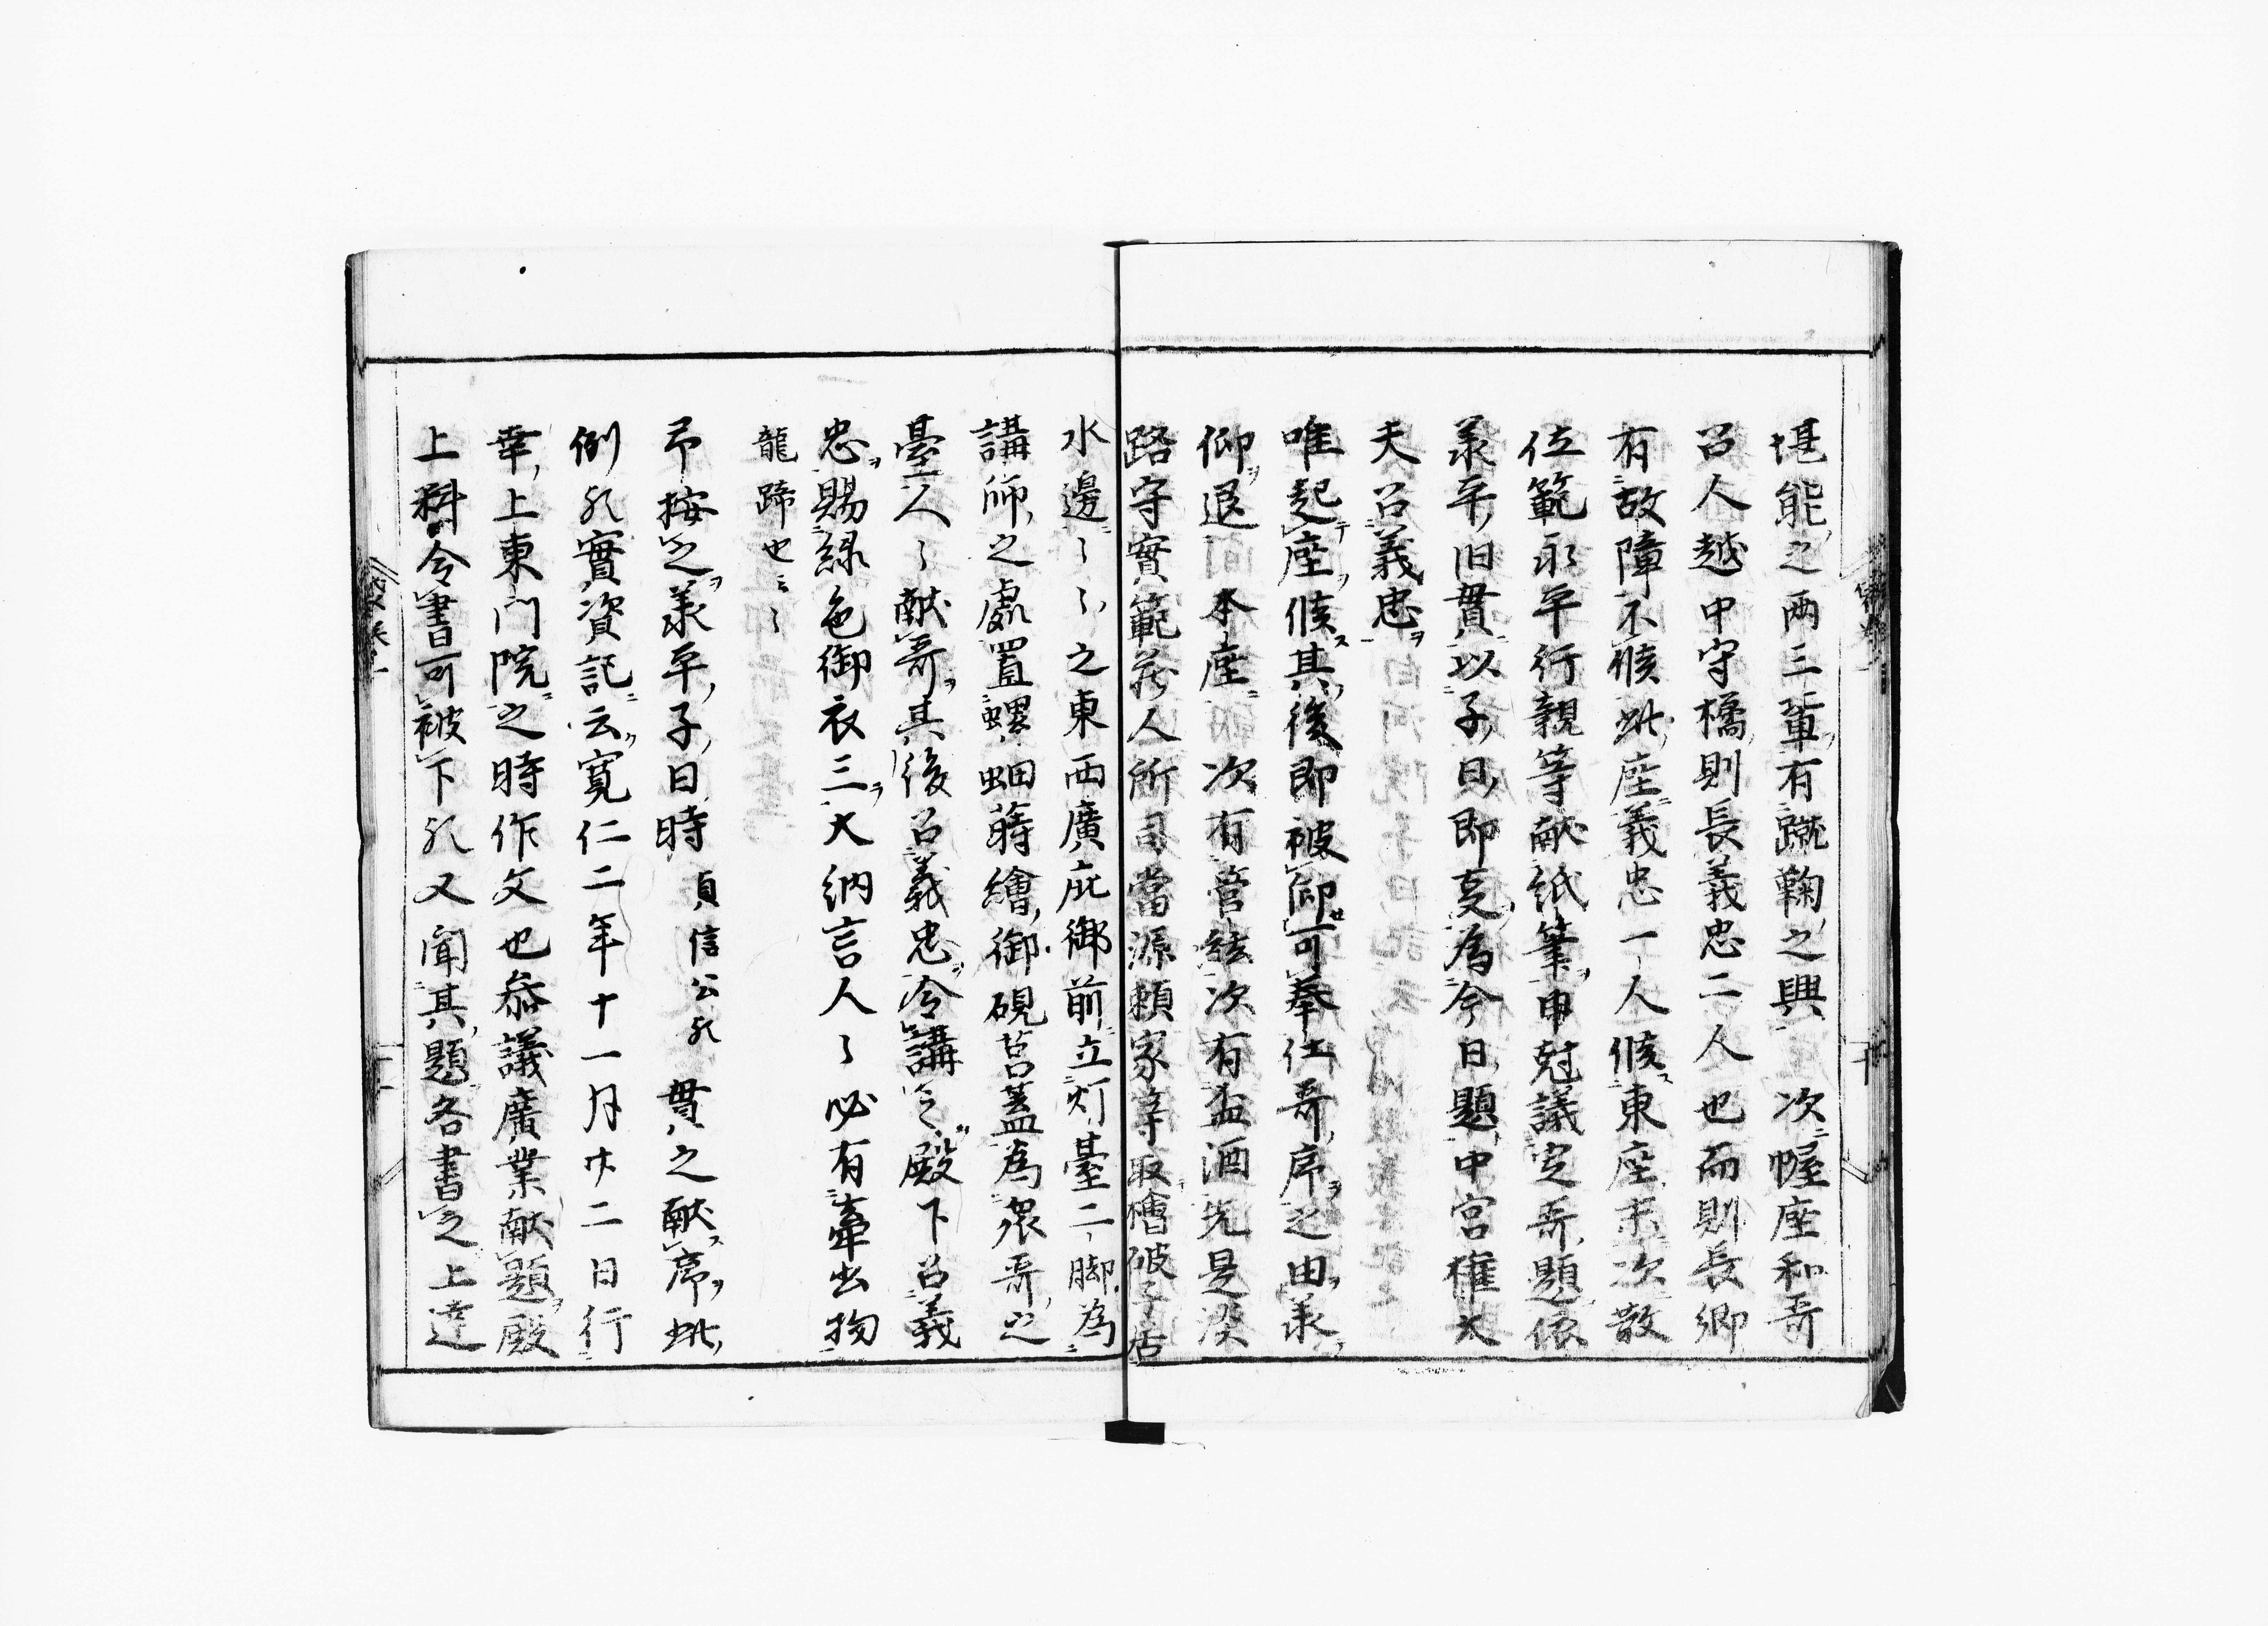 堪能之両三輩有蹴鞠之興　次幄座和哥
召人越中守橘則長義忠二人也而則長卿
有故障不候此座義忠一人候東座末次散
位範永平行親等献紙筆申尅議定哥題依
承平旧貫以子日即事為今日題中宮権大
夫召義忠
唯起座候其後即被仰可奉仕哥序之由承
仰退本座　次有管絃次有盃酒先是淡
路守實範蔵人所司當源頼家等取檜破子居
水邊〻〻之東西廣庇御前立灯臺二脚為
講師之處置螺鈿蒔繪御硯筥蓋為衆哥之
臺人〻献哥其後召義忠令講之殿下召義
忠賜緑色御衣三大納言人〻必有牽出物
龍蹄也〻〻
予按之承平子日時　貞信公歟　貫之献序此
例歟實資記云寛仁二年十一月廿二日行
幸上東門院之時作文也参議廣業献題殿
上料令書可被下歟又聞其題各書之上達